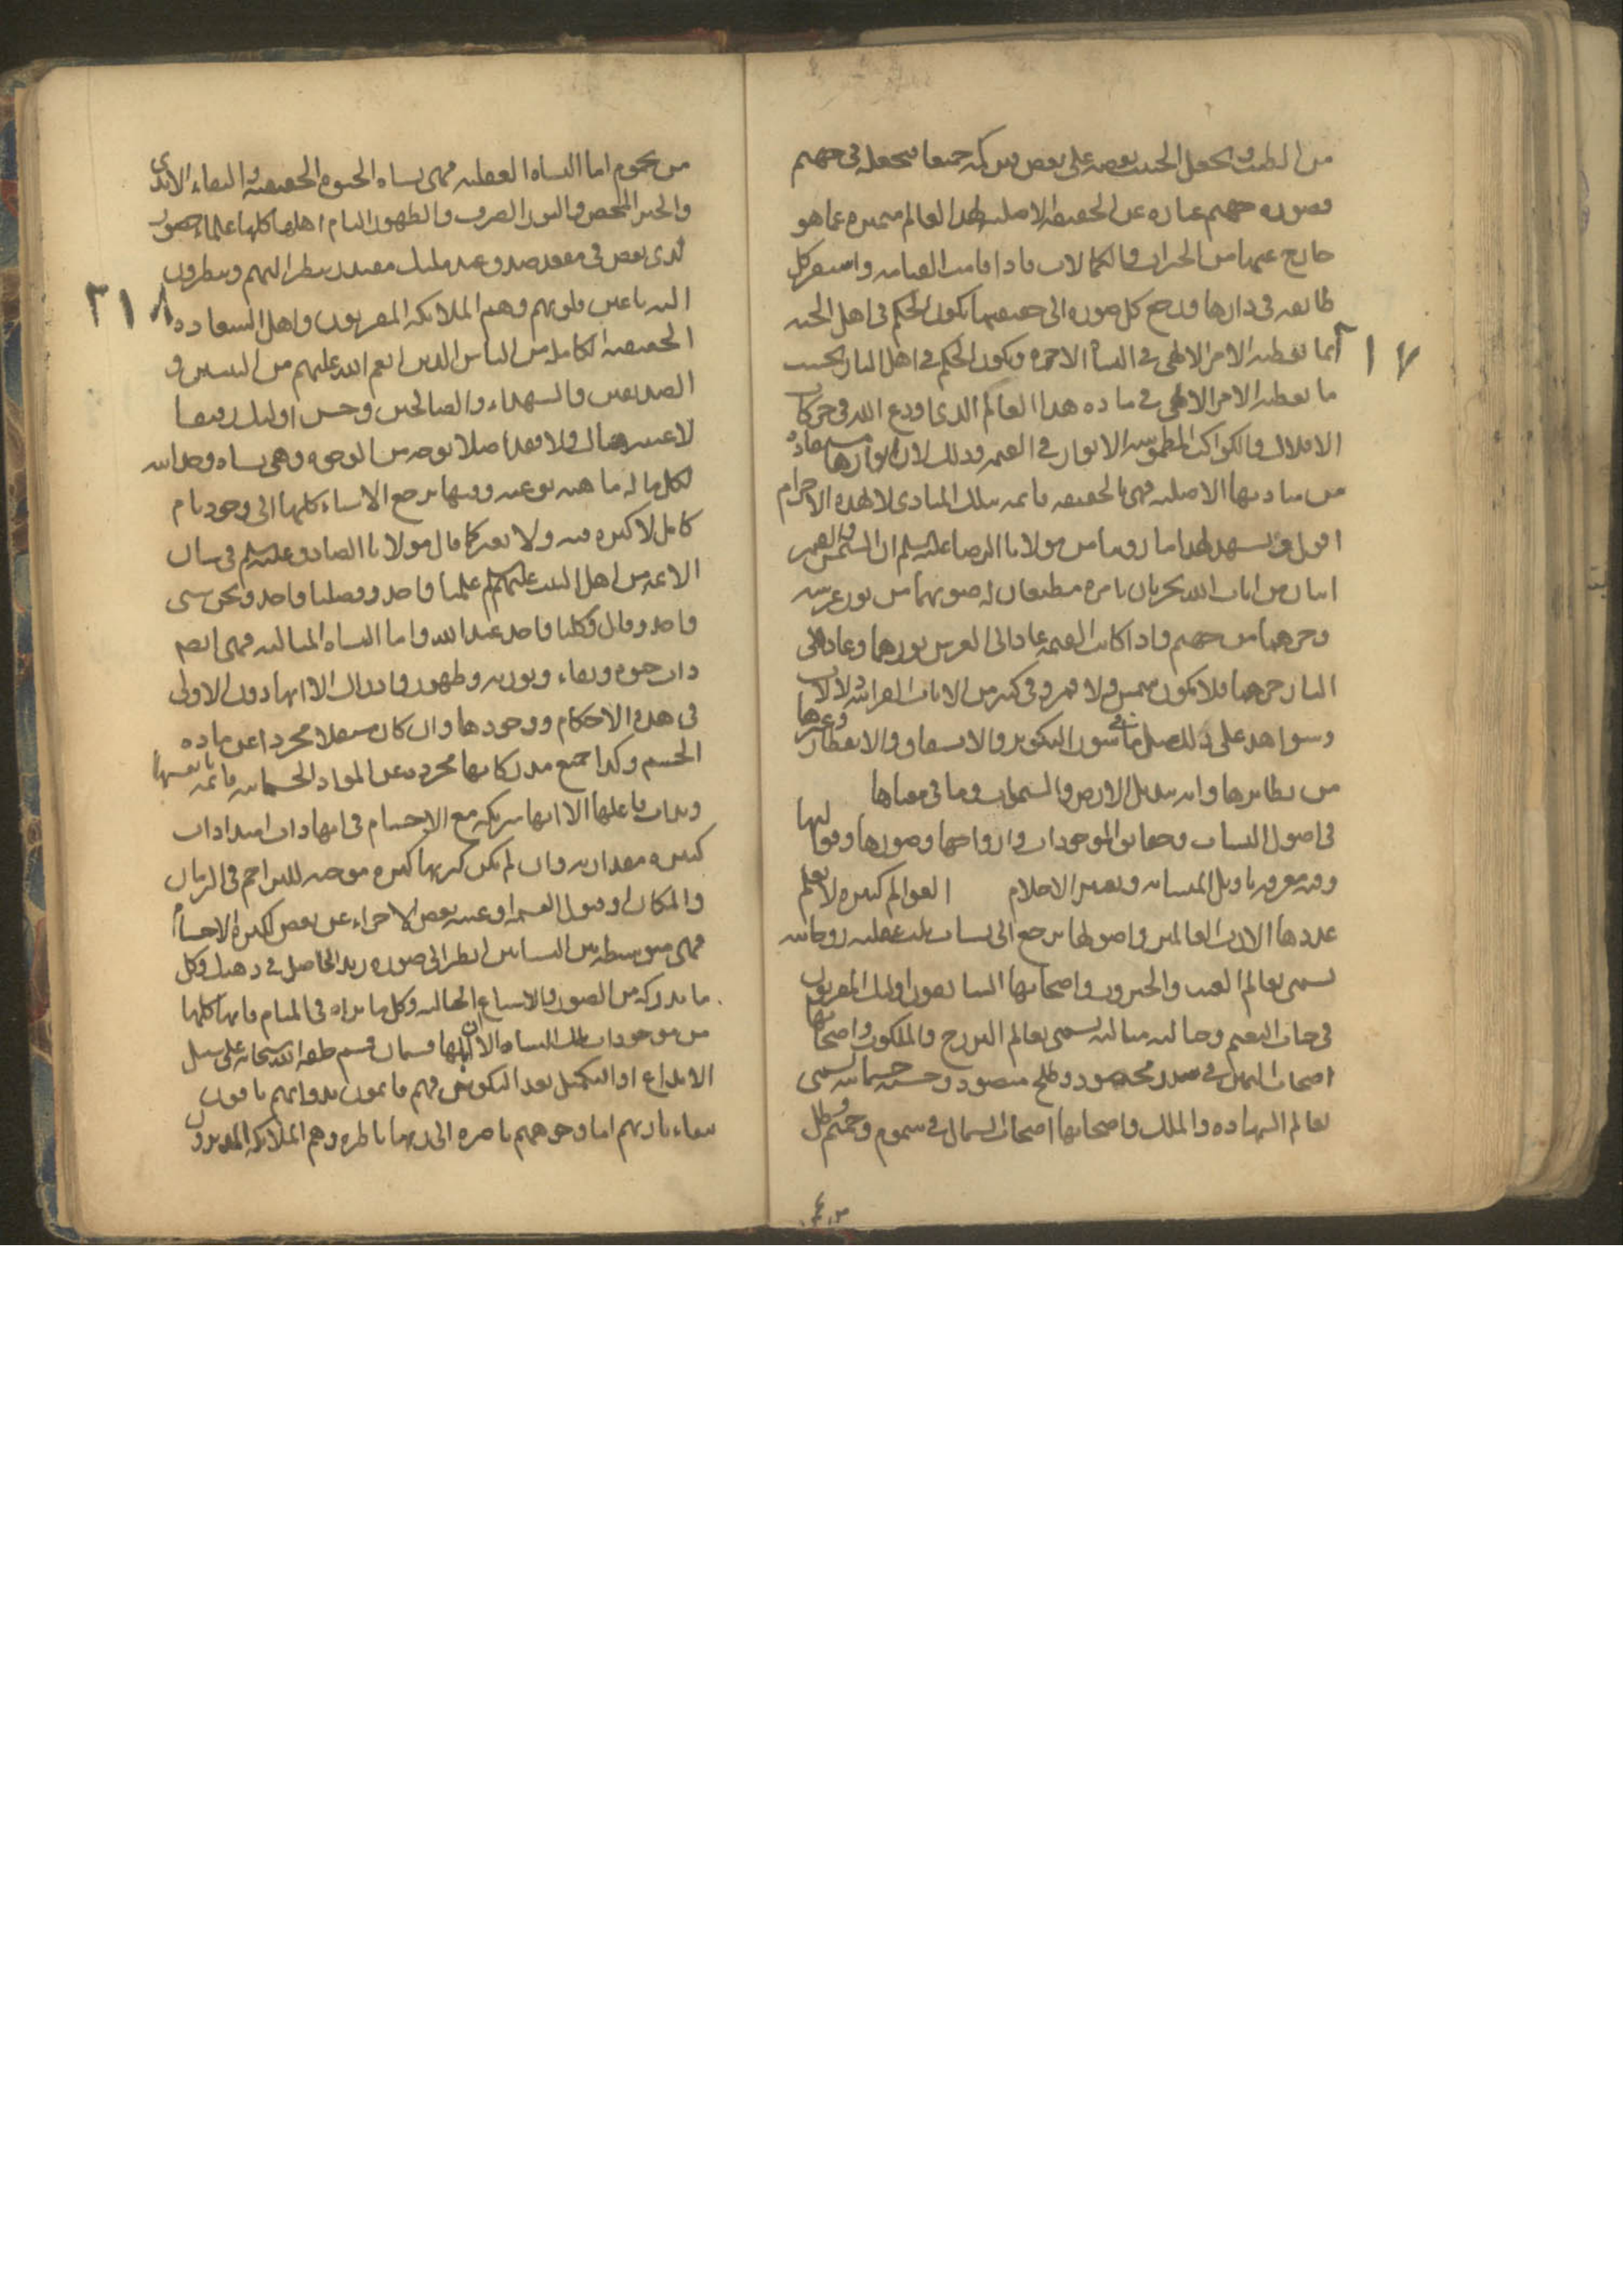 من الطيب ويجعل الخبيث بعضه على بعض فيركمه جميعا فيجعله في جهنم
فصورة جهنم عبارة عن الحقيقة الاصلية لهذا العالم متميزة عما هو
خارج عنها من الخيرات والكمالات فاذا قامت القيامة واستقر كل
طائفة في دارها ورجع كل صورة الى حقيقتها يكون الحكم في اهل الجنة
بما يعطيه الامر الالهي في النشأة الاخرة ويكون الحكم في اهل النار بحسب
ما يعطيه الامر الالهي في مادة هذا العالم الذي اودع الله في حركات
الافلاك والكواكب المطموسة الانوار في القيمة وذلك لان انوارها مستفادة
من مباديها الاصلية فهي بالحقيقة قائمة بتلك المبادي لا بهذه الاجرام
اقول ويشهد لهذا ما رويناه من مولانا الرضا عليه السلم ان الشمس والقمر
ايتان من ايات الله يجريان بامره مطيعان له ضوئهما من نور عرشه
وحرهما من جهنم فاذا كانت القيمة عاد الى العرش نورهما وعاد الى
النار حرهما فلا يكون شمس ولا قمر وفي كثير من الايات القرانية دلالات
وشواهد على ذلك مثل ما في سور التكوير والانشقاق والانفطار وغيرها
من نظايرها واية تبديل الارض والسموات وما في معناها
في اصول النشات وحقايق الموجودات وارواحها وصورها وقوالبها
وفيه معرفة تاويل المتشابه وتعبير الاحلام العوالم كثيرة لا يعلم
عددها الا رب العالمين واصولها يرجع الى نشات ثلث عقلية روحانية
تسمى بعالم الغيب والجبروت واصحابها السابقون اولئك المقربون
في جنات النعيم وخيالية مثالية تسمى بعالم البرزخ والملكوت واصحابها
اصحاب اليمين في سدر مخضود وطلح منضود وحسية جسمانية تسمى
بعالم الشهادة والملك واصحابها اصحاب الشمال في سموم وحميم وظل
من يحموم اما النشاة العقلية فهي نشاة الحيوة الحقيقية والبقاء الابدي
والخير المحض والنور الصرف والظهور التام اهلها كلها علماء حضور
لدى بعض في مقعد صدق عند مليك مقتدر ينظر اليهم وينظرون
اليه باعين قلوبهم وهم الملائكة المقربون واهل السعادة
الحقيقية الكاملة من الناس الذين انعم الله عليهم من النبيين و
الصديقين والشهداء والصالحين وحسن اولئك رفيقا
لا غيبة هناك ولا فقد اصلا بوجه من الوجوه وهي نشاة وحدانية
لكل ما له ماهية نوعية وفيها يرجع الاشياء كلها الى وجود تام
كامل لا كثرة فيه ولا تغير كما قال مولانا الصادق عليه السلم في شان
الائمة من اهل البيت عليهم السلم علمنا واحد وفضلنا واحد ونحن شيء
واحد وقال وكلنا واحد عند الله واما النشاة المثالية فهي ايضا
ذات حيوة وبقاء ونورية وظهور وادراك الا انها دون الاولى
في هذه الاحكام ووجودها وان كان مستقلا مجردا عن مادة
الجسم وكذا جميع مدركاتها مجردة عن المواد الجسمانية قائمة بانفسها
وبذات فاعلها الا انها شريكة مع الاجسام في انها ذات امتدادات
كثيرة مقدارية وان لم يكن كثرتها كثرة موجبة للتزاحم في الزمان
والمكان او قبول القسمة او غيبة بعض الاجزاء عن بعض ككثرة الاجسام
فهي متوسطة بين النشاتين انظر الى صورة زيد الحاصل في ذهنك وكل
ما يدركه من الصور والاشباح الخيالية وكل ما يراه في المنام فانها كلها
من موجودات تلك النشاة الا ان اهلها قسمان قسم خلقه الله سبحانه على سبيل
الابداع او التكميل بعد التكوين فهم قائمون بذواتهم باقون
ببقاء باريهم اما وجوههم ناضرة الى ربها ناظرة وهم الملائكة المدبرون
٢١٨